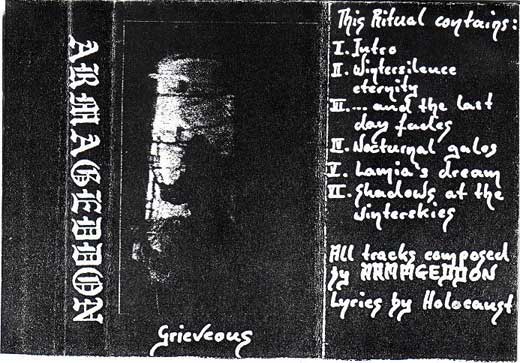 ARMAGEDDON
Grieveous
This Ritual contains:
I. Intro
II. Wintersilence
eternity
III. ... and the last
day fades
IV. Nocturnal galos
V. Lamia's dream
VI. Shadows at the
Winterskies
All tracks composed
by ARMAGEDDON
Lyrics by Holocaust